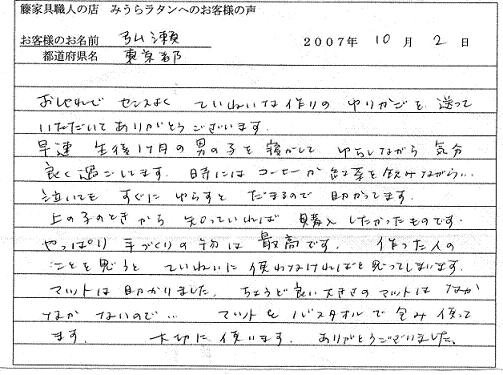 藤家具職人の店　みうらラタンへのお客様の声
お客様のお名前　弘瀬　2007年 10 月 2 日
都道府県名　東京都
おしゃれで センスよく ていねいな作りの ゆりかごを 送って
いただいてありがとうございます。
早速 生後1ヶ月の男の子を 寝かして ゆらしながら 気分
良く過ごしてます。時には コーヒーか 紅茶を飲みながら…
泣いても すぐに ゆらすと だまるので 助かってます。
上の子のときから 知っていれば 購入したかったものです。
やっぱり 手づくりの物は 最高です。 作った人の
ことを思うと ていねいに 使わなければと思ってしまいます。
マットは助かりました。ちょうど良い大きさのマットは なか
なかないので‥ マットを バスタオルで 包み 使って
ます。 大切に使います。ありがとうございました。